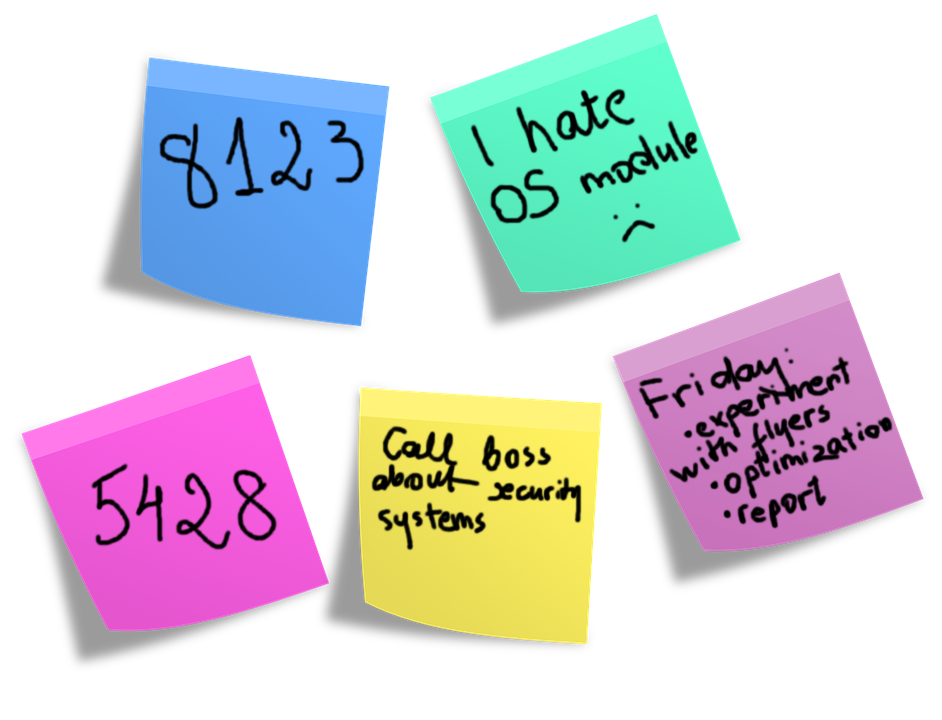 8123
I hate
OS module
:(
5428
Call boss
about security
systems
Friday:
• experiment
with flyers
• optimization
• report